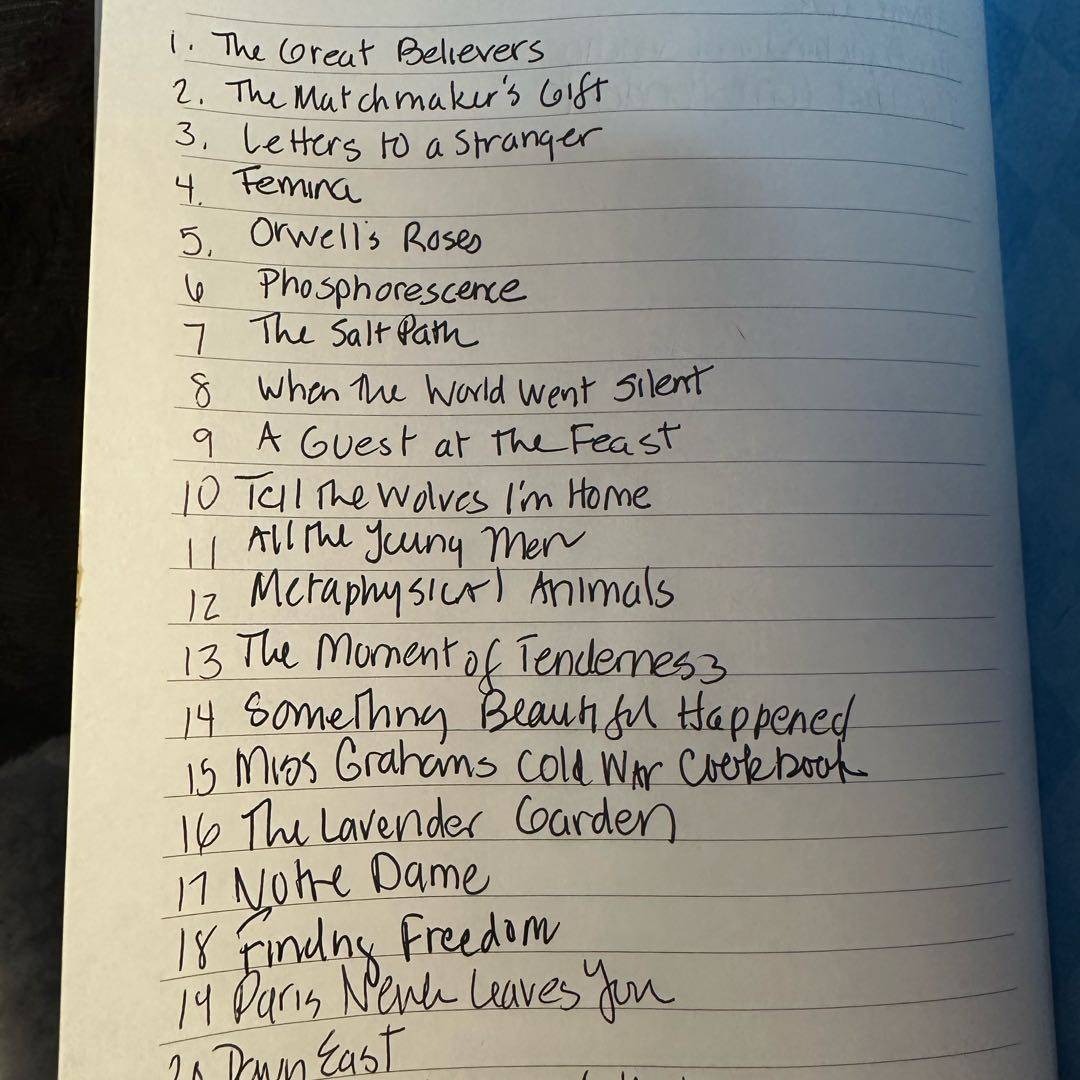 1. The Great Believers
2. The Matchmaker's Gift
3. Letters to a Stranger
4. Femina
5. Orwell's Roses
6 Phosphorescence
7 The Salt Path
8 When the World Went Silent
9 A Guest at the Feast
10 Tell The Wolves I'm Home
11 All The Young Men
12 Metaphysical Animals
13 The Moment of Tenderness
14 Something Beautiful Happened
15 Miss Grahams Cold War Cookbook
16 The Lavender Garden
17 Notre Dame
18 Finding Freedom
19 Paris Never Leaves You
20 Down East